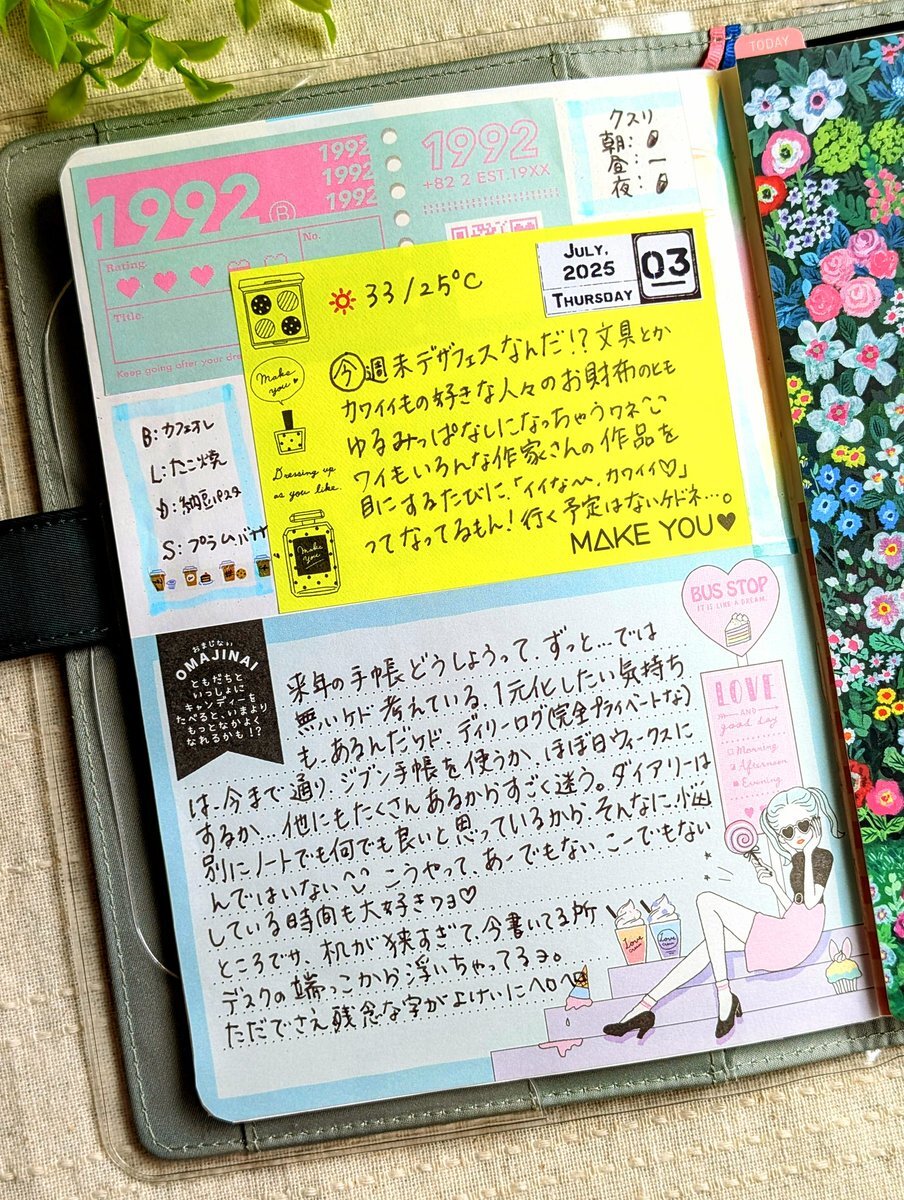 TODAY
1992
1992
1992
1992
B
Rating.
No.
Title.
Keep going after your dre
1992
+82 2 EST.19XX
クスリ
朝:
昼: ー
夜:
JULY,
2025
THURSDAY
03
33/25℃
Make you
Dressing up
as you like.
Make you
今週末デザフェスなんだ!?文具とか
カワイイもの好きな人々のお財布のヒモ
ゆるみっぱなしになっちゃうワネ
ワイもいろんな作家さんの作品を
目にするたびに、「イイなへ、カワイイ♡」
ってなってるもん!行く予定はないケドネ…。
MAKE YOU♥
B:カフェオレ
L:たこ焼
D:納豆パスタ
S:プラムバナ
おまじない
OMAJINAI
ともだちと
いっしょに
キャンディーを
たべると、いまより
もっとなかよく
なれるかも!?
BUS STOP
IT IS LIKE A DREAM.
LOVE
AND
good day
Morning
Afternoon
Evening
来年の手帳どうしようって、ずっと…では
無いケド考えている、1元化したい気持ち
も、あるんだケド、デイリーログ(完全プライベートな)
は、今まで通りジブン手帳を使うか、ほぼ日ウィークスに
するか…他にもたくさんあるからすごく迷う。ダイアリーは
別にノートでも何でも良いと思っているから、そんなに悩
んではいない こうやって、あーでもないこーでもない
している時間も大好きヨ♡
ところでサ、机が狭すぎて、今書いてる所
デスクの端っこから浮いちゃってるヨ。
ただでさえ残念な字がよけいにヘロヘロ
Love
Love